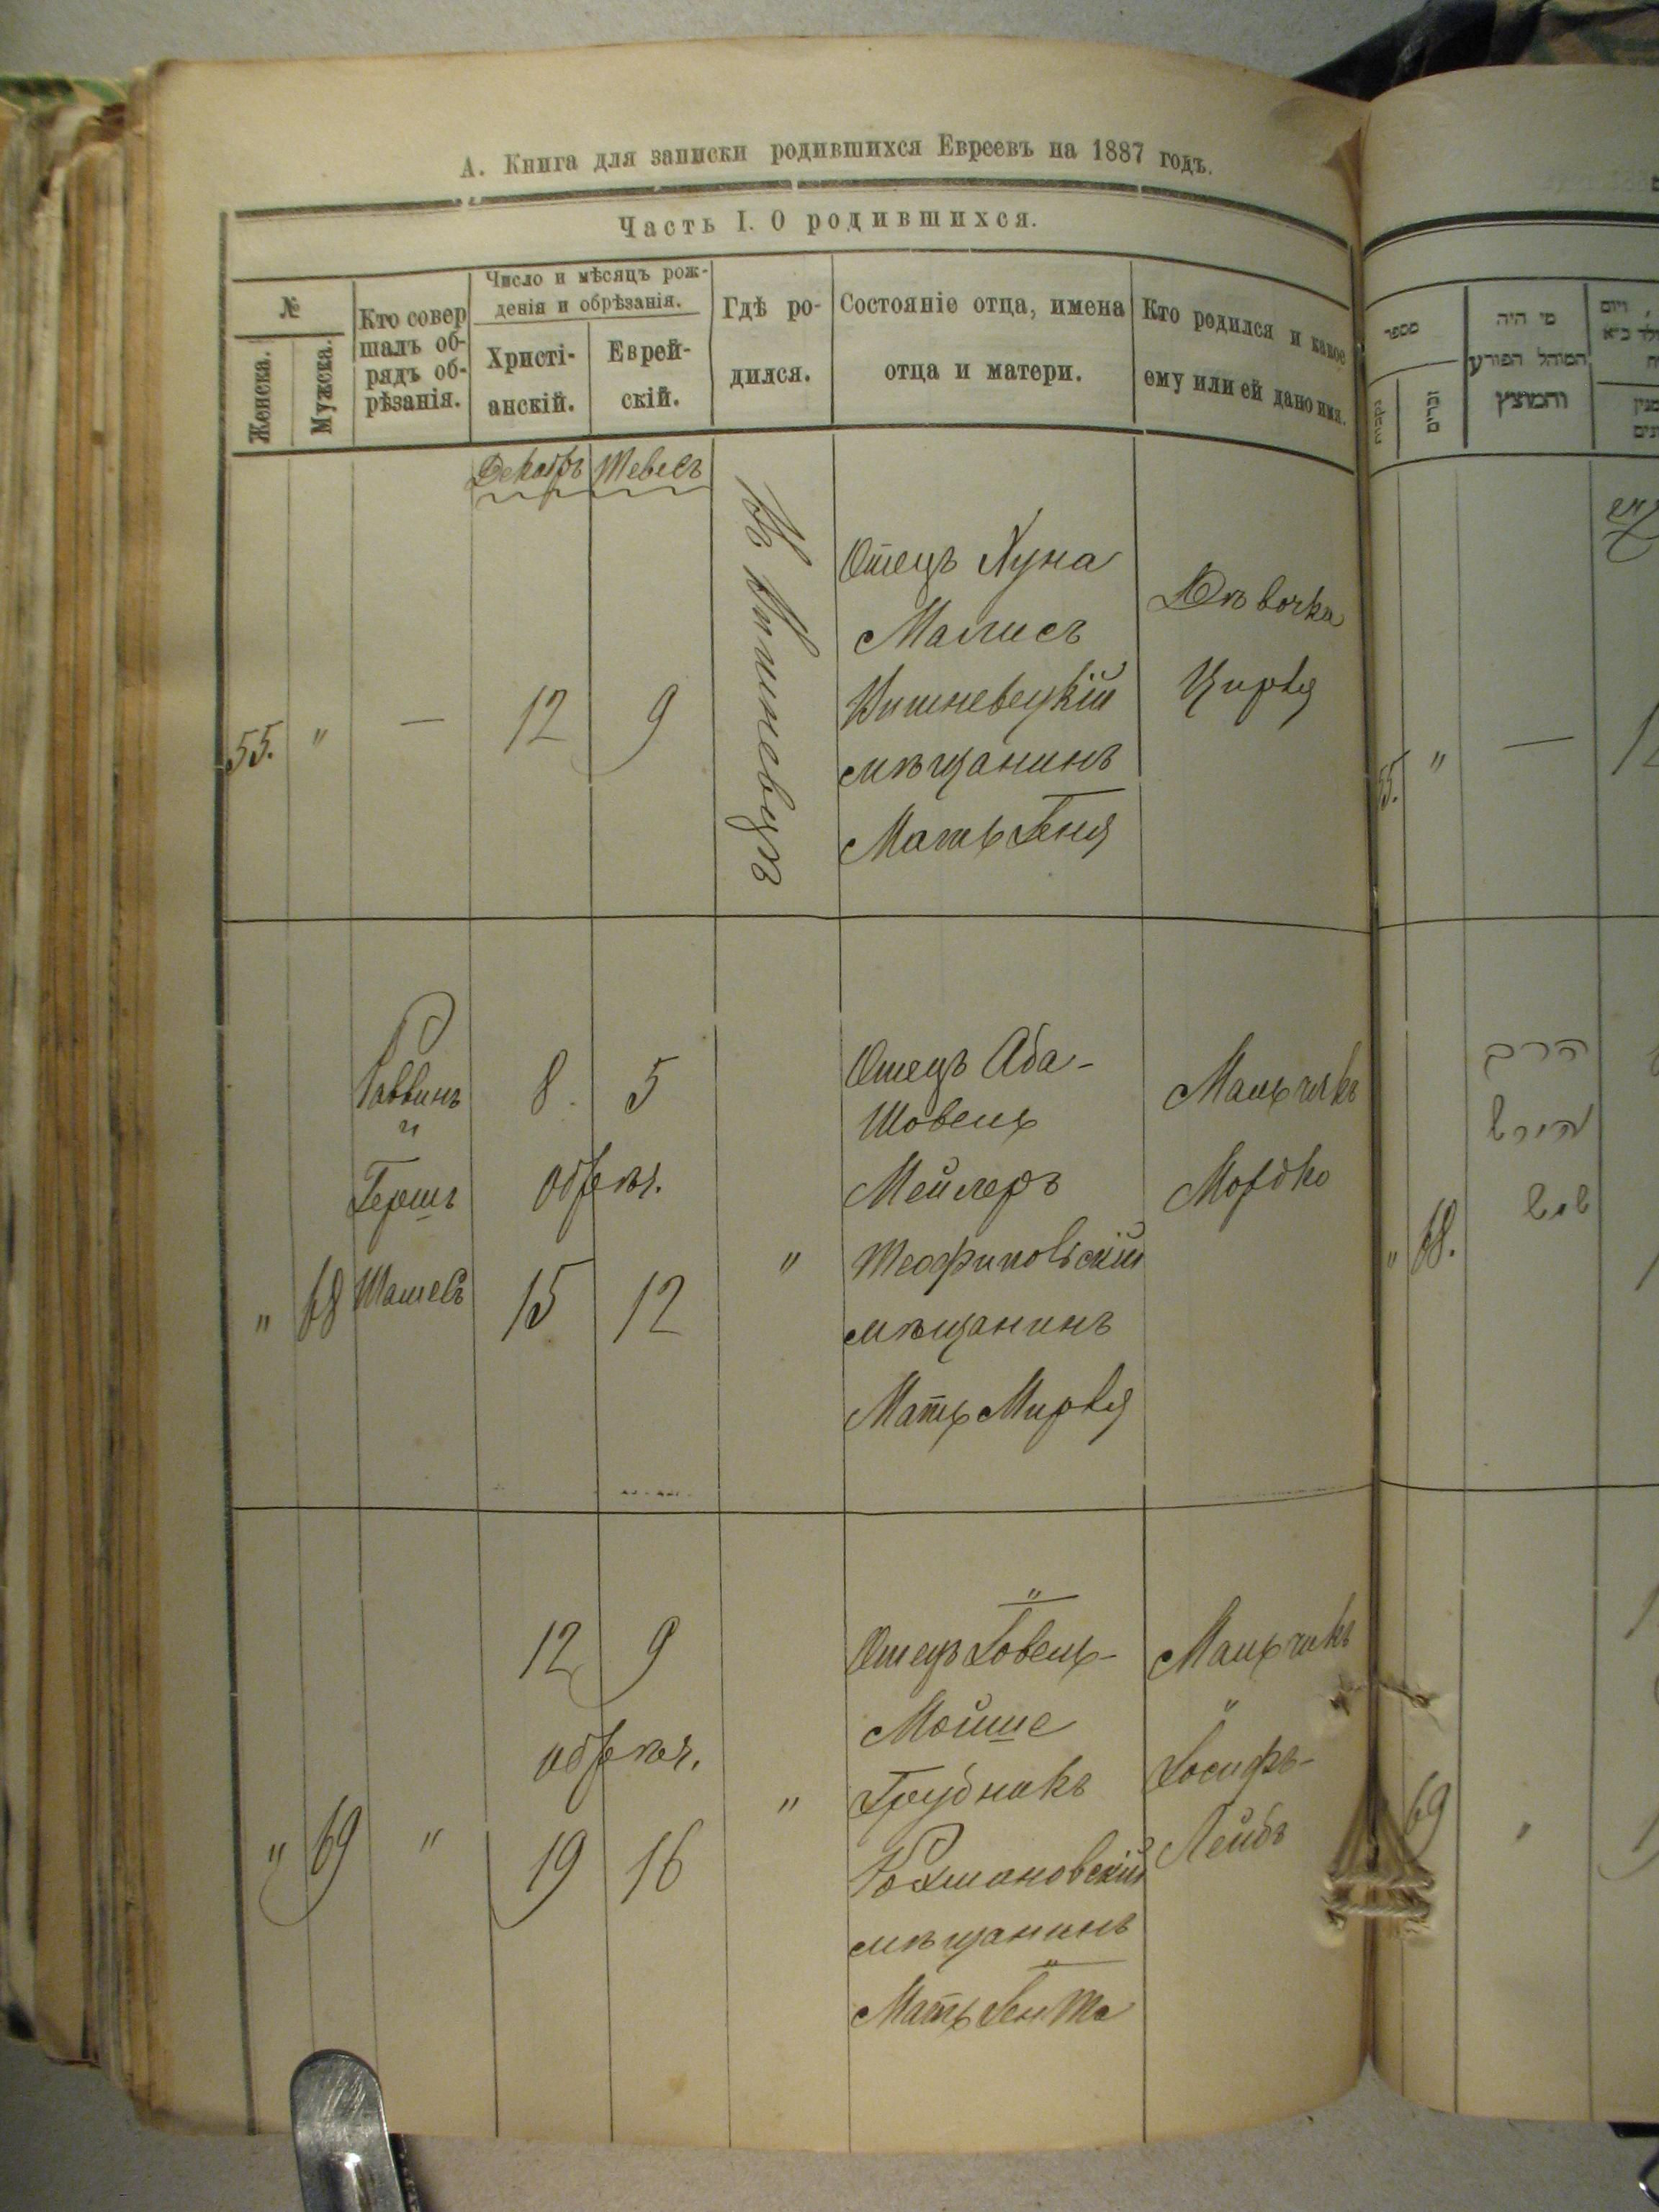 А. Книга для записки родившихся Евреевъ на 1887 годъ.
Часть I. О родившихся.
№
Женска.
Мужска.
Кто совер
шалъ об-
рядъ об-
рѣзанія.
Число и мѣсяцъ рож-
денія и обрѣзанія.
Христі-
анскій.
Еврей-
скій.
Гдѣ ро-
дился.
Состояніе отца, имена
отца и матери.
Кто родился и какое
ему или ей дано имя.
Декабрь
Тевесъ
55.
"
—
12
9
въ Вишневцѣ
Отецъ Хуна
Малисъ
Вишневецкій
мѣщанинъ
Мать Геня
Дѣвочка
Цирля
"
68
Раввинъ
и
Гершъ
8
5
обрѣз.
15
12
"
Отецъ Аба-
Шовель
Мейлеръ
Теофипольскій
мѣщанинъ
Мать Мирля
Мальчикъ
Мордко
"
69
"
12
9
обрѣз.
19
16
"
Мойше
Грудникъ
мѣщанинъ
Мать
Мальчикъ
Іосифъ-
Лейбъ
מספר
זכרים
מי היה
המוהל הפורע
והמוצץ
55.
"
—
הרב
"
68.
69
"